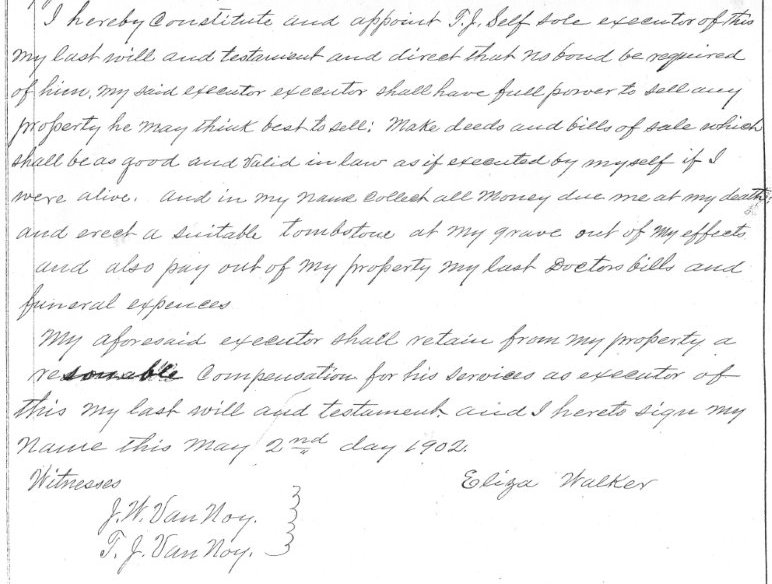 I hereby Constitute and appoint T.J. Self sole executor of this
my last will and testament and direct that no bond be required
of him, my said executor executor shall have full power to sell any
property he may think best to sell; Make deeds and bills of sale which
shall be as good and valid in law as if executed by myself if I
were alive. and in my name Collect all Money due me at my death;
and erect a suitable tombstone at my grave out of my effects
and also pay out of my property my last Doctors bills and
funeral expences
My aforesaid executor shall retain from my property a
resonable Compensation for his services as executor of
this my last will and testament. and I hereto sign my
Name this May 2nd day 1902.
Witnesses Eliza Walker
J.W. Van Noy.
T.J. Van Noy.